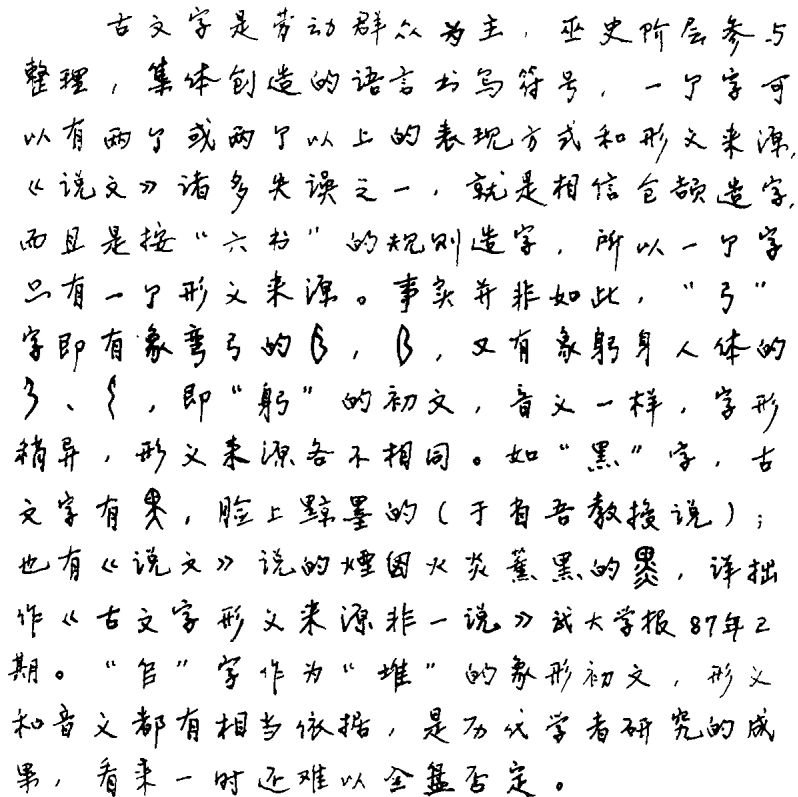 古文字是劳动群众为主，巫史阶层参与
整理，集体创造的语言书写符号，一个字可
以有两个或两个以上的表现方式和形义来源，
《说文》诸多失误之一，就是相信仓颉造字，
而且是按“六书”的规则造字，所以一个字
只有一个形义来源。事实并非如此，“弓”
字即有象弯弓的，，又有象躬身人体的
、，即“躬”的初文，音义一样，字形
稍异，形义来源各不相同。如“黑”字，古
文字有，脸上黥墨的（于省吾教授说）；
也有《说文》说的烟囱火炎薰黑的，详拙
作《古文字形义来源非一说》武大学报87年2
期。“𠂤”字作为“堆”的象形初文，形义
和音义都有相当依据，是历代学者研究的成
果，看来一时还难以全盘否定。